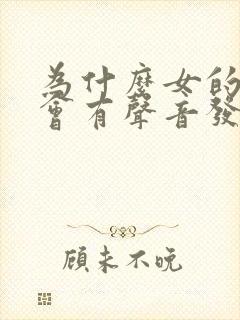 為什麼女的
會有聲音發
顧未不晚